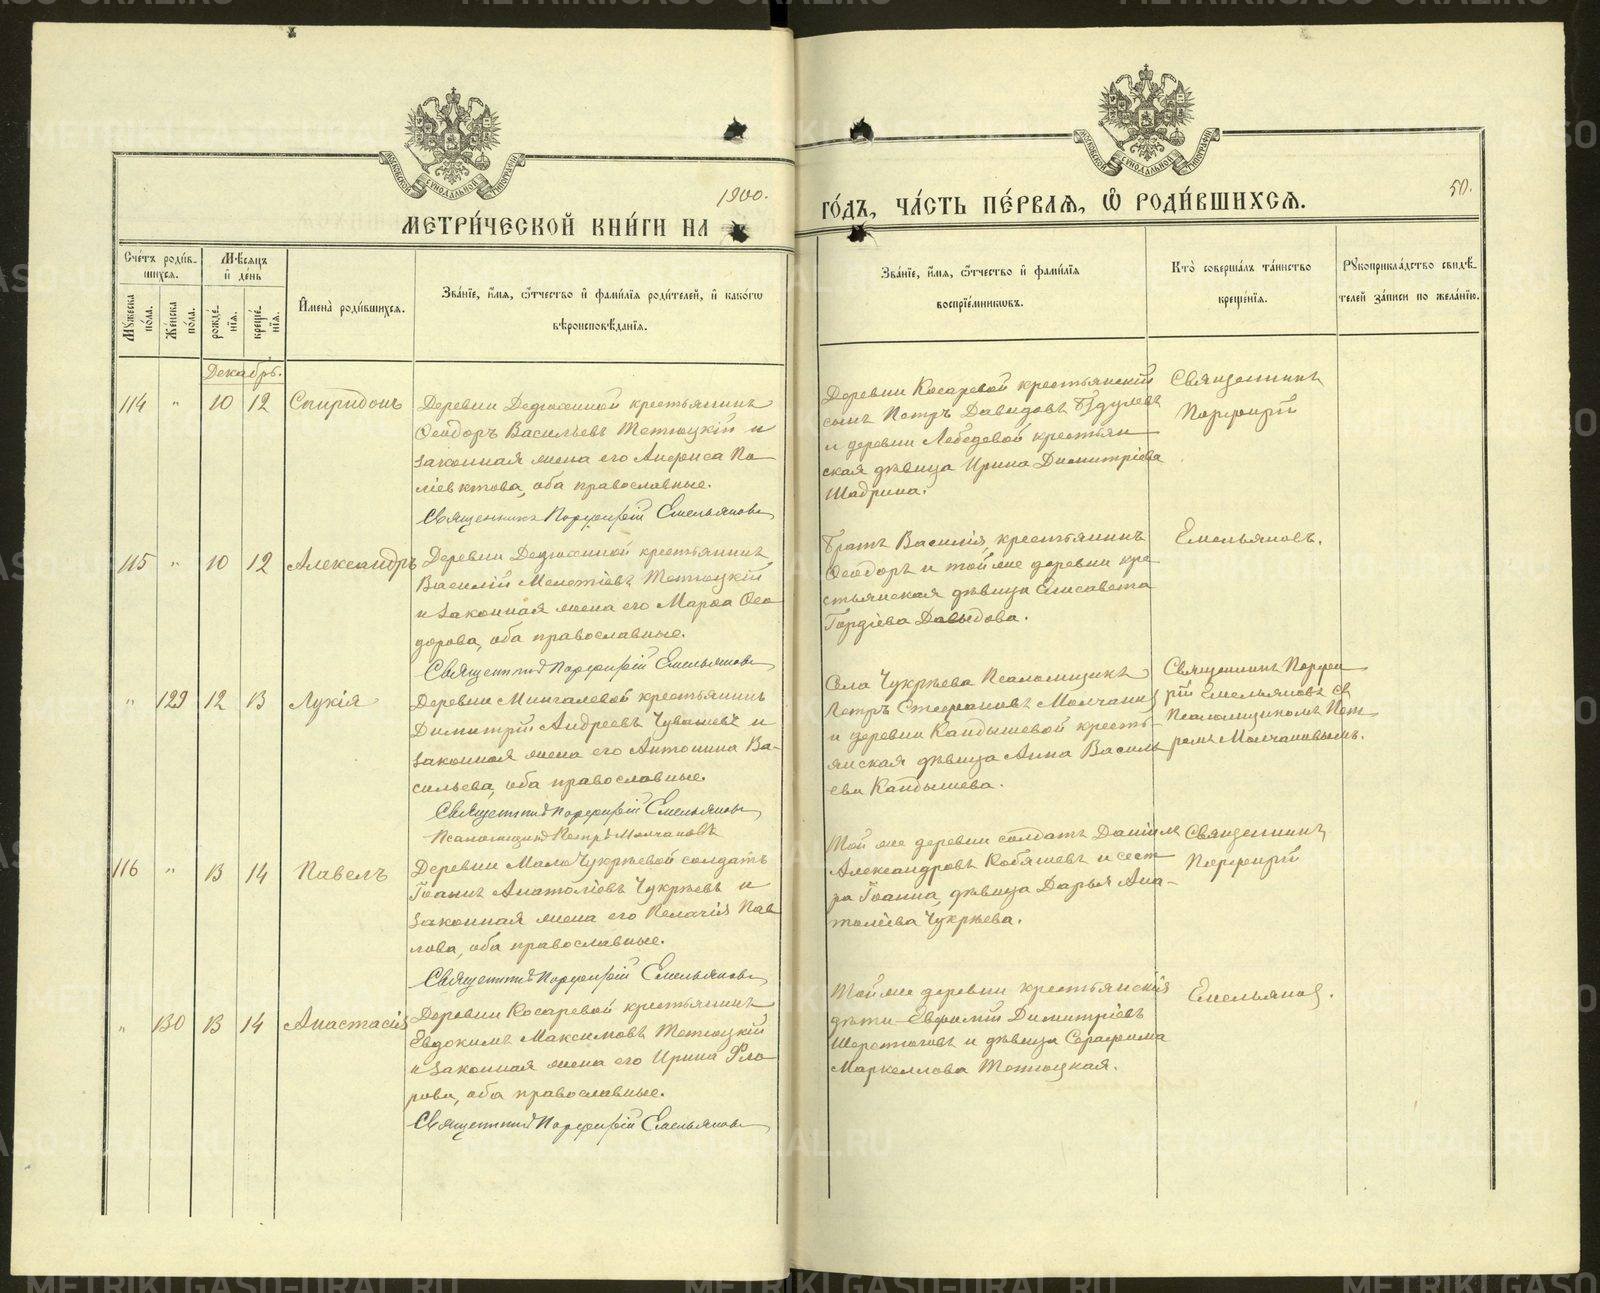 1900.
50.
МЕТРИ́ЧЕСКОЙ КНИ́ГИ НА
ГО́ДЪ, ЧА́СТЬ ПЕ́РВАЯ, Ѡ҆ РОДИ́ВШИХСЯ.
Сче́тъ роди́в-
шихся.
Мꙋ́жеска по́ла.
Же́нска по́ла.
Мѣ́сяцъ
и҆ де́нь
рожде́-
нїя.
креще́-
нїя.
И҆мена̀ роди́вшихся.
Зва́нїе, и҆́мя, ѻ҆́тчество и҆ фами́лїя роди́телей, и҆ како́гѡ
вѣроисповѣ́данїя.
Зва́нїе, и҆́мя, ѻ҆́тчество и҆ фами́лїя
воспрїе́мниковъ.
Кто̀ соверша́лъ та́инство
креще́нїя.
Рꙋкоприкла́дство свидѣ́-
телей за́писи по жела́нїю.
Декабрь.
114 " 10 12 Спиридонъ
Деревни Дедюхиной крестьянинъ
Ѳеодоръ Васильевъ Тетюцкій и
законная жена его Анфиса По-
ліевктова, оба православные.
Священникъ Порфирій Емельяновъ
Деревни Косаревой крестьянскій
сынъ Петръ Давидовъ
и деревни Лебедевой крестьян
ская дѣвица Ирина Димитріева
Шадрина.
Священникъ
Порфирій
115 " 10 12 Александръ
Деревни Дедюхиной крестьянинъ
Василій Мелетіевъ Тетюцкій
и законная жена его Марѳа Ѳео
дорова, оба православные.
Священникъ Порфирій Емельяновъ
Братъ Василія крестьянинъ
Ѳеодоръ и той же деревни кре
стьянская дѣвица Елисавета
Гордіева Давыдова.
Емельяновъ.
" 129 12 13 Лукія
Деревни Мингалевой крестьянинъ
Димитрій Андреевъ Чувашевъ и
законная жена его Антонина Ва-
сильева, оба православные.
Священникъ Порфирій Емельяновъ
Псаломщикъ Петръ Молчановъ
Села Чукрѣева Псаломщикъ
Петръ Стефановъ Молчанов
и деревни Кандышевой кресть-
янская дѣвица Анна Василь
ева Кандышева.
Священникъ Порфи
рій Емельяновъ съ
Псаломщикомъ Пет
ромъ Молчановымъ.
116 " 13 14 Павелъ
Деревни Мало Чукрѣевой солдатъ
Іоаннъ Анатоліевъ Чукрѣевъ и
законная жена его Пелагія Пав
лова, оба православные.
Священникъ Порфирій Емельяновъ
Той же деревни солдатъ Даніилъ
Александровъ Кобяшевъ и сест
ра Іоанна, дѣвица Дарья Ана-
толіева Чукрѣева.
Священникъ
Порфирій
" 130 13 14 Анастасія
Деревни Косаревой крестьянинъ
Евдокимъ Максимовъ Тетюцкій
и законная жена его Ирина Фло
рова, оба православные.
Священникъ Порфирій Емельяновъ
Той же деревни крестьянскія
дѣти Евфимій Димитріевъ
и дѣвица Серафима
Маркеллова Тетюцкая.
Емельянов.
METRIKI.GASO-URAL.RU